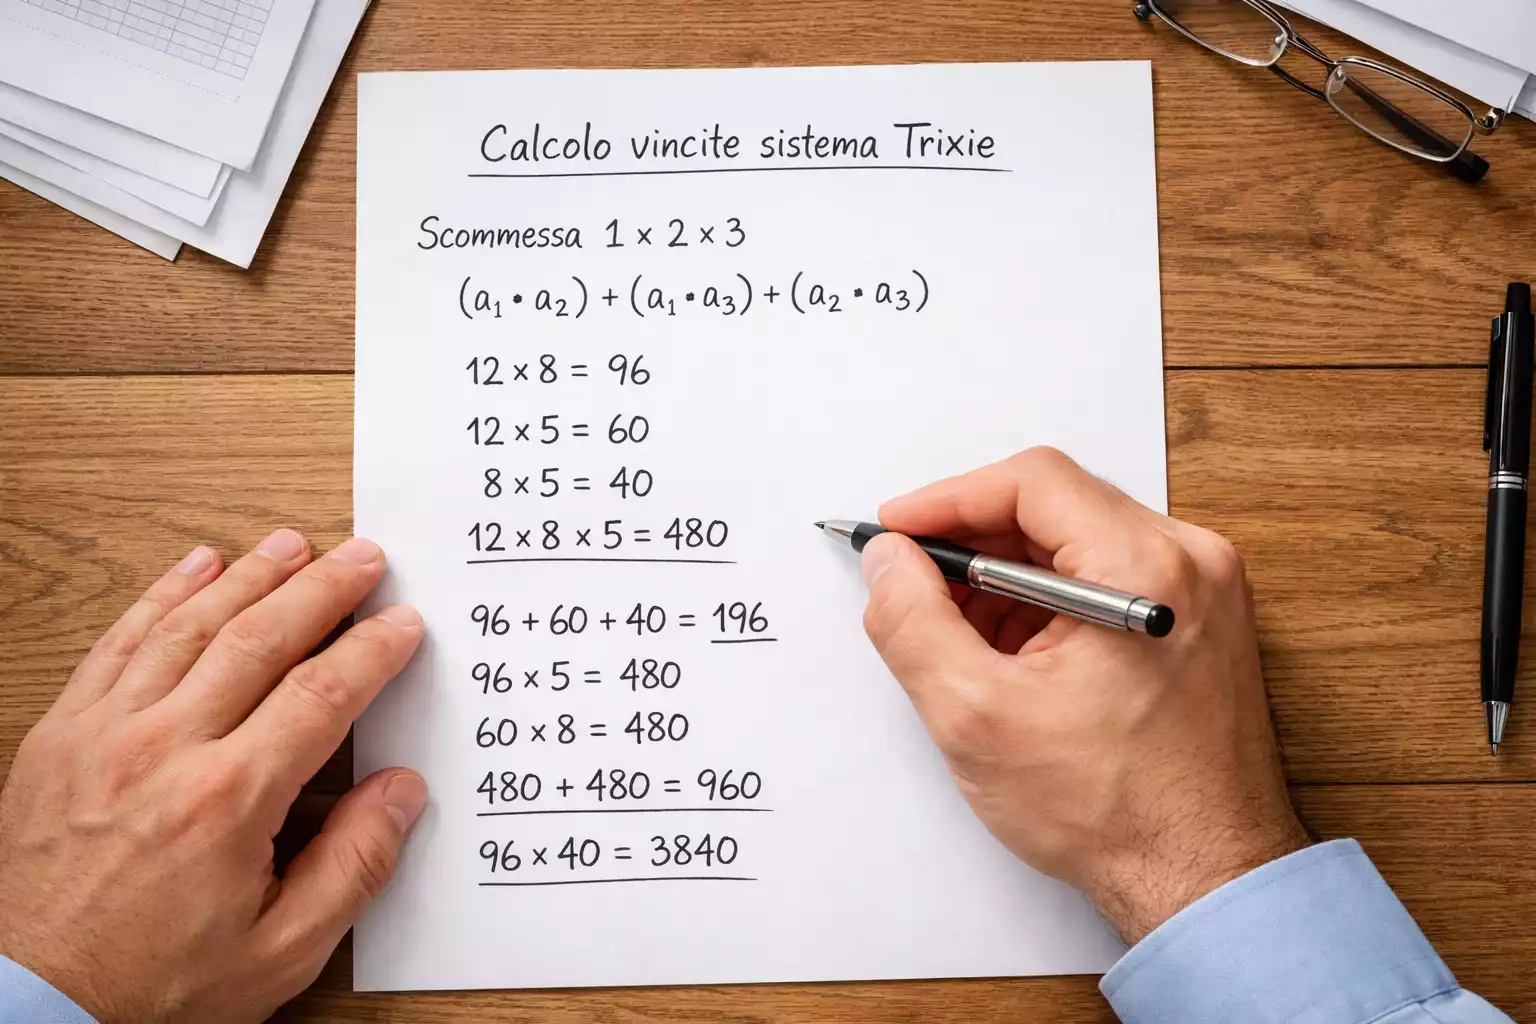 Calcolo vincite sistema Trixie
Scommessa 1 × 2 × 3
(a₁ • a₂) + (a₁ • a₃) + (a₂ • a₃)
12 × 8 = 96
12 × 5 = 60
8 × 5 = 40
12 × 8 × 5 = 480
96 + 60 + 40 = 196
96 × 5 = 480
60 × 8 = 480
480 + 480 = 960
96 × 40 = 3840